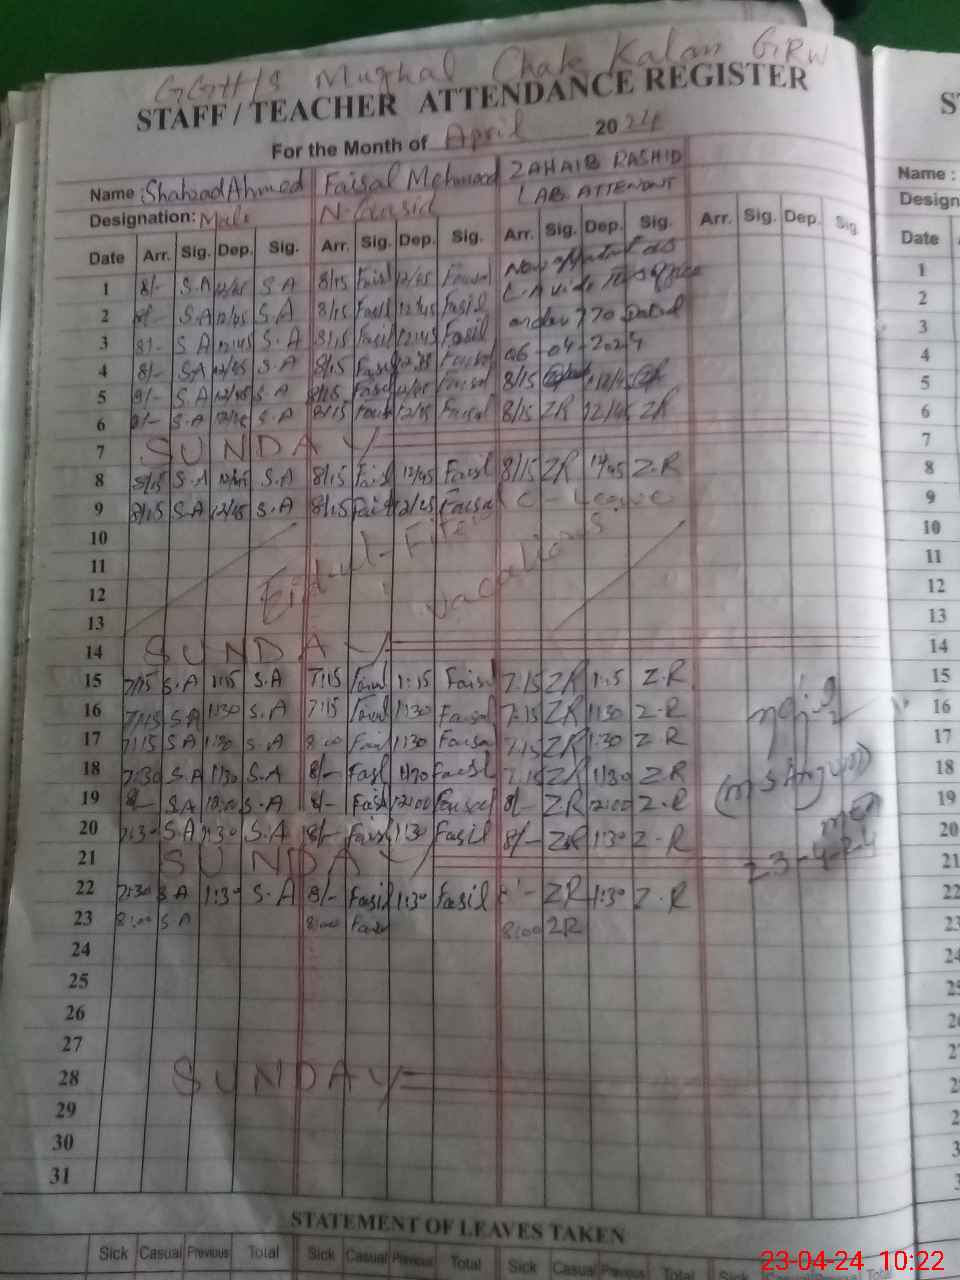 GGHS Mughal Chak Kalan GRW
STAFF / TEACHER ATTENDANCE REGISTER
For the Month of April 2024
Name : Shahzad Ahmed Faisal Mehmood ZAHAIB RASHID
Designation: Mali N-Qasid LAB. ATTENDANT
Date Arr. Sig. Dep. Sig. Arr. Sig. Dep. Sig. Arr. Sig. Dep. Sig. Arr. Sig. Dep. Sig.
1 8/- S.A 12/45 S.A 8/15 Faisl 12/45 Faisal
2 8/- S.A 12/45 S.A 8/15 Fasil 12/45 Fasil
3 8/- S.A 12/45 S.A 8/15 Fasil 12/45 Fasil order 770 Dated
4 8/- S.A 12/45 S.A 8/15 Faisal 06-04-2024
5 8/- S.A 12/45 S.A 8/15 Fasil 12/45 Faisal 8/15 12/45
6 8/- S.A 12/45 S.A 8/15 12/45 Faisal 8/15 ZR 12/45 ZR
7 SUNDAY
8 8/15 S.A 12/45 S.A 8/15 Faisl 12/45 Faisl 8/15 ZR 12/45 Z.R
9 8/15 S.A 12/45 S.A 8/15 12/45 Faisal C-Leave
10
11 Eid-ul-Fiter
12 vacations
13
14 SUNDAY
15 7/15 S.A 1:15 S.A 7:15 1:15 Faisal 7:15 ZR 1:15 Z.R
16 7/15 S.A 1:30 S.A 7:15 1:30 Faisal 7:15 ZR 1:30 Z.R
17 7:15 S.A 1:30 S.A 8:00 1:30 Faisal 7:15 ZR 1:30 Z R
18 7:30 S.A 1:30 S.A 8/- Fasl 1:30 Faisl 7:15 ZR 1:30 Z.R
19 8/- S.A 12:00 S.A 8/- Faisl 12:00 Faisal 8/- ZR 12:00 Z.R
20 7:30 S.A 1:30 S.A 8/- Faisl 1:30 Fasil 8/- ZR 1:30 Z.R
21 SUNDAY 23-4-24
22 7:30 S.A 1:30 S.A 8/- Fasil 1:30 Fasil 8/- ZR 1:30 Z.R
23 8:00 S.A 8:00 8:00 ZR
24
25
26
27
28 SUNDAY
29
30
31
STATEMENT OF LEAVES TAKEN
Sick Casual Previous Total Sick Casual Previous Total Sick Casual Previous Total
Name :
Date
1
2
3
4
5
6
7
8
9
10
11
12
13
14
15
16
17
18
19
20
21
22
23-04-24 10:22